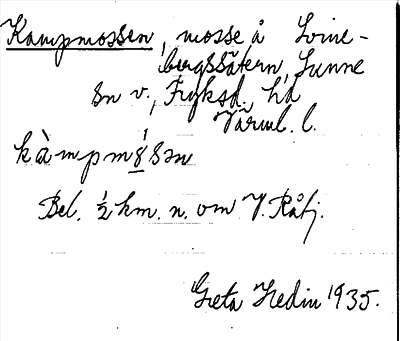 Kampmossen, mosse å Svine-
bergssätern, Sunne
sn v., Fryksd. hd
Värml. l.
kàmpmo̠´sən
Bel. ½ km. n. om V. Råtj.
Greta Hedin 1935.